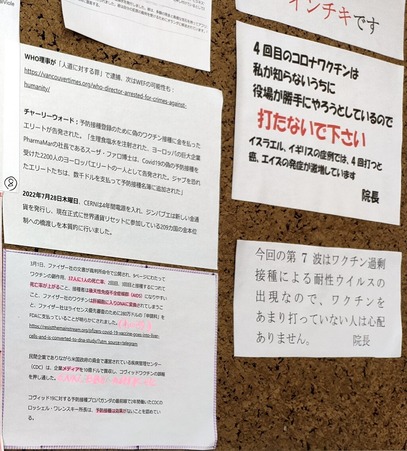 インチキです
WHO理事が「人道に対する罪」で逮捕、次はWEFの可能性も：
https://vancouvertimes.org/who-director-arrested-for-crimes-against-
humanity/
チャーリーウォード：予防接種登録のために偽のワクチン接種に金を払った
エリートが告発された。「生理食塩水を注射された、ヨーロッパの巨大企業
PharmaMarの社長であるスーザ・ファロ博士は、Covid19の偽の予防接種
を受けた2200人のヨーロッパエリートの一人として告発された。ジャブを恐れ
たエリートたちは、数千ドルを支払って予防接種名簿に追加された」
2022年7月28日木曜日、CERNは4年間電源を入れ、ジンバブエは新しい金通
貨を発行し、現在正式に世界通貨リセットに参加している209カ国の金本位
制への橋渡しを本質的に行いました。
4回目のコロナワクチンは
私が知らないうちに
役場が勝手にやろうとしているので
打たないで下さい
イスラエル、イギリスの症例では、4回打つと
癌、エイズの発症が激増しています
院長
今回の第7波はワクチン過剰
接種による耐性ウイルスの
出現なので、ワクチンを
あまり打っていない人は心配
ありません。 院長
3月1日、ファイザー社の文書が裁判所命令で公開され、9ページにわたって
ワクチンの副作用、
死亡率が上がること、接種者は後天性免疫不全症候群（AIDS）になりやすい
こと、ファイザー社のワクチンは
こと、ファイザーはライセンス
FDAに支払っていることが明らかにされました。
民間企業でありながら米国政府の資金で運営されている疾病管理センター
（CDC）は、企業メディアを10億ドルで買収し、コヴィッドワクチンの誤報
を押し通した。
コヴィッド19に対する予防接種プロパガンダの最前線で2年間働いたCDCの
ロッシェル・ワレンスキー所長は、予防接種は効果がないことを認めてい
る。